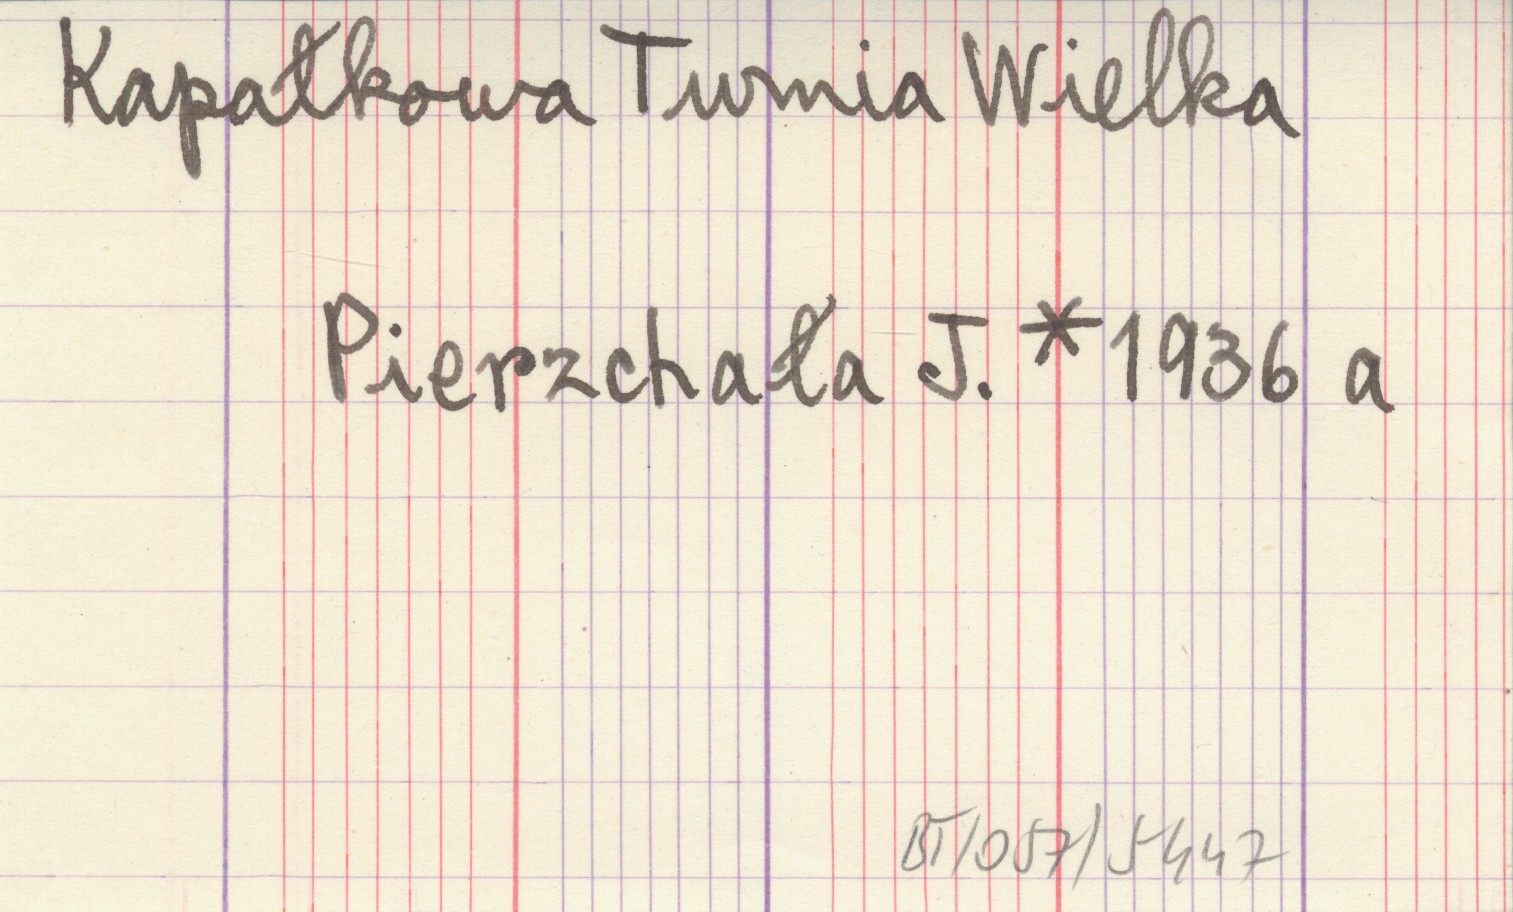 Kapałkowa Turnia Wielka
Pierzchała J. * 1936 a
BT/057/5447